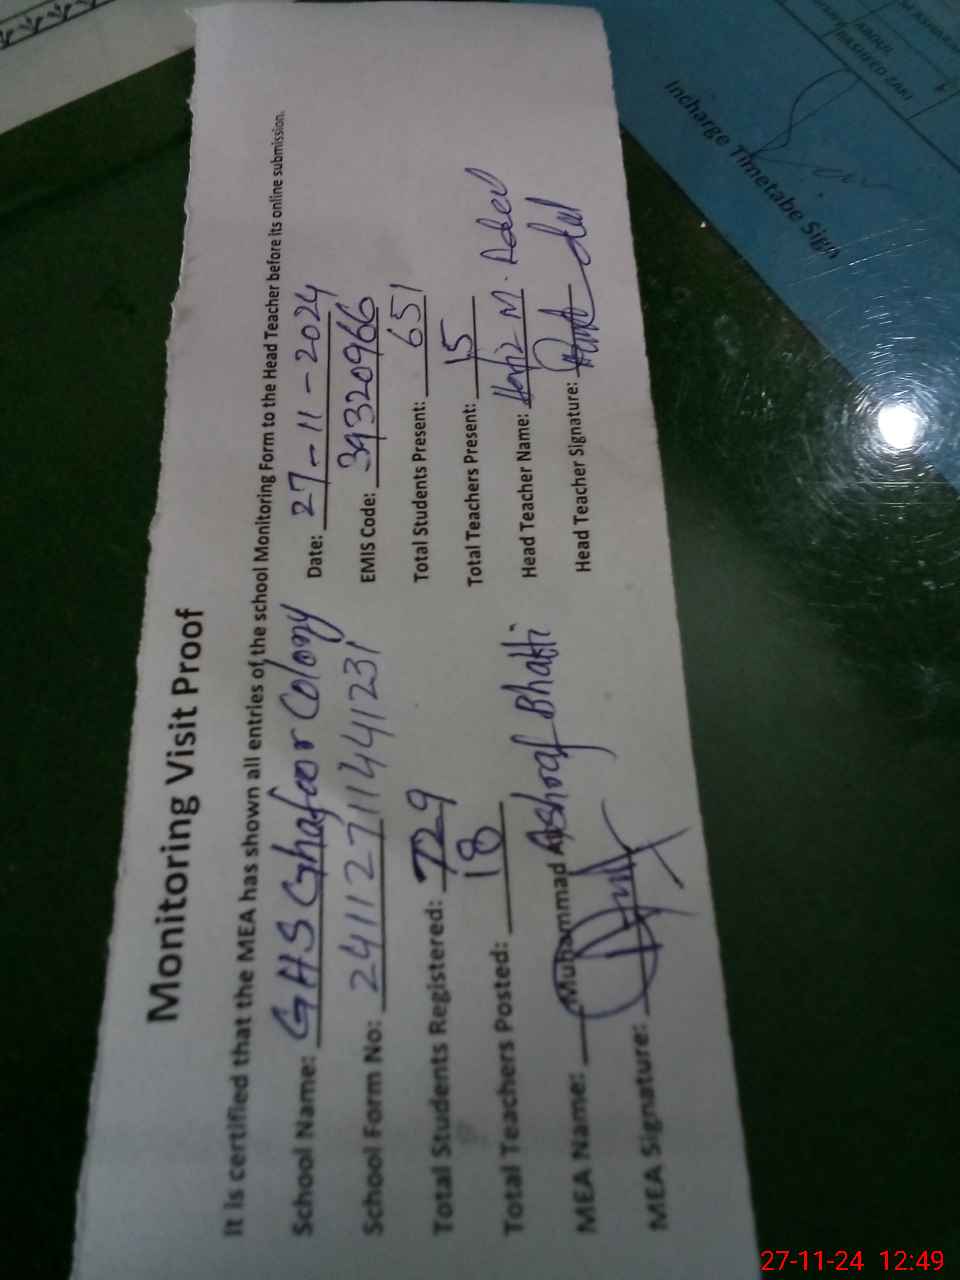 Monitoring Visit Proof
It is certified that the MEA has shown all entries of the school Monitoring Form to the Head Teacher before its online submission.
School Name: GHS Ghafoor Colony Date: 27-11-2024
School Form No: 2411127111441231 EMIS Code: 39320966
Total Students Registered: 729 Total Students Present: 651
Total Teachers Posted: 18 Total Teachers Present: 15
MEA Name: Muhammad Ashraf Bhatti Head Teacher Name: Hafiz M. Adeel
MEA Signature: Head Teacher Signature:
Incharge Timetabe Sign
RASHEED ZAKI
27-11-24 12:49